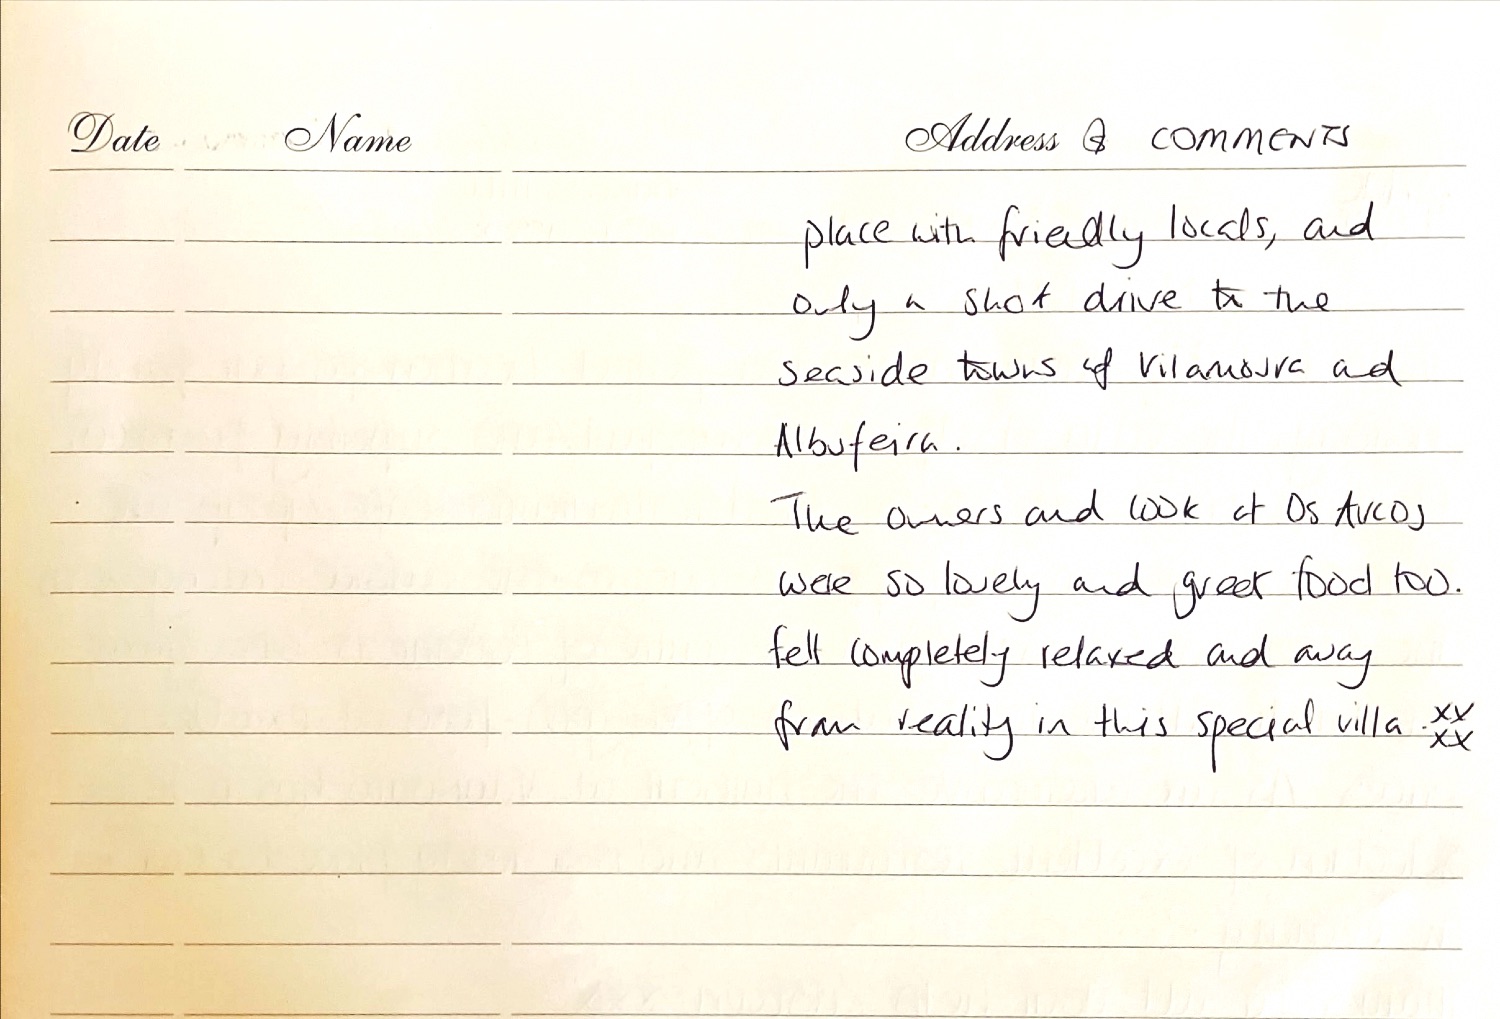 Date Name Address & COMMENTS
place with friendly locals, and
only a short drive to the
seaside towns of Vilamoura and
Albufeira.
The owners and cook at Os Arcos
were so lovely and great food too.
felt completely relaxed and away
from reality in this special villa. xx
xx